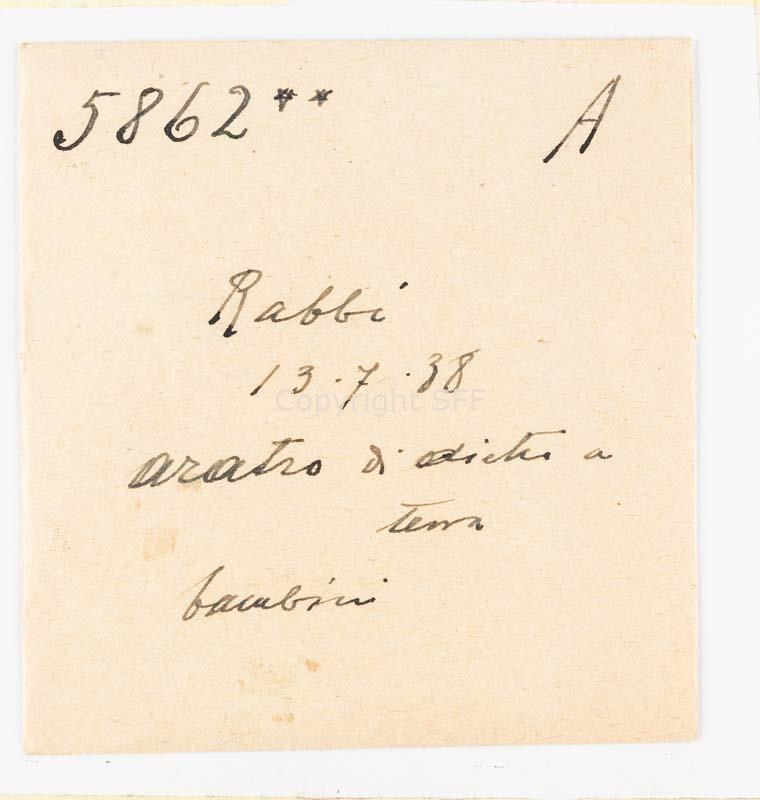 5862** A
Rabbi
13.7.38
Copyright SFF
aratro di dietro a
terra
bambini